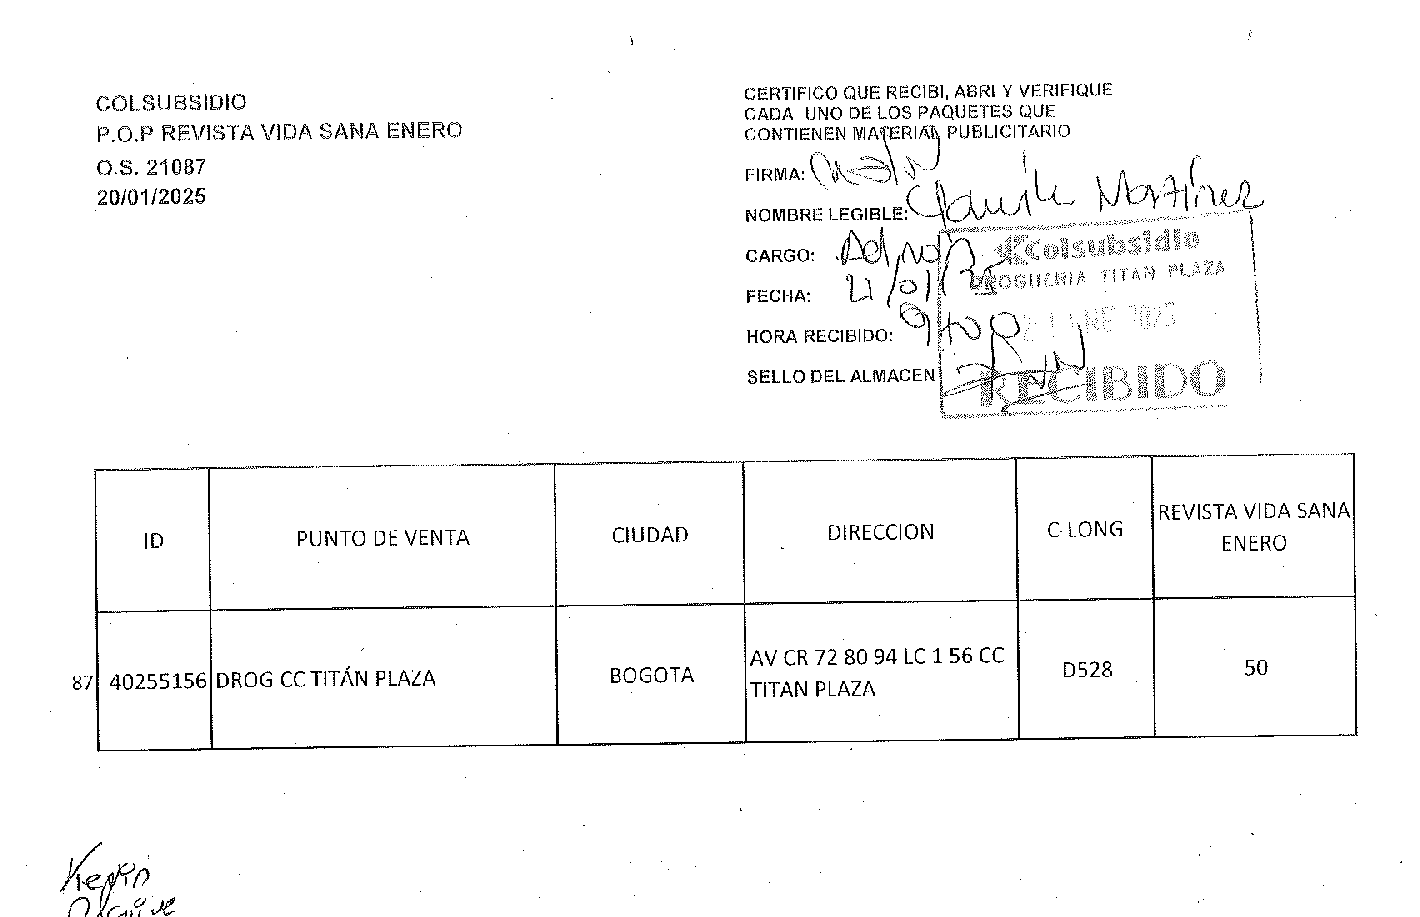 COLSUBSIDIO
P.O.P REVISTA VIDA SANA ENERO
O.S. 21087
20/01/2025
CERTIFICO QUE RECIBI, ABRI Y VERIFIQUE
CADA UNO DE LOS PAQUETES QUE
CONTIENEN MATERIAL PUBLICITARIO
FIRMA:
NOMBRE LEGIBLE: Martínez
CARGO:
FECHA: 21/01/
HORA RECIBIDO:
SELLO DEL ALMACEN
Colsubsidio
DROGUERIA TITAN PLAZA
21 ENE 2025
RECIBIDO
ID
PUNTO DE VENTA
CIUDAD
DIRECCION
C-LONG
REVISTA VIDA SANA
ENERO
87
40255156
DROG CC TITÁN PLAZA
BOGOTA
AV CR 72 80 94 LC 1 56 CC
TITAN PLAZA
D528
50